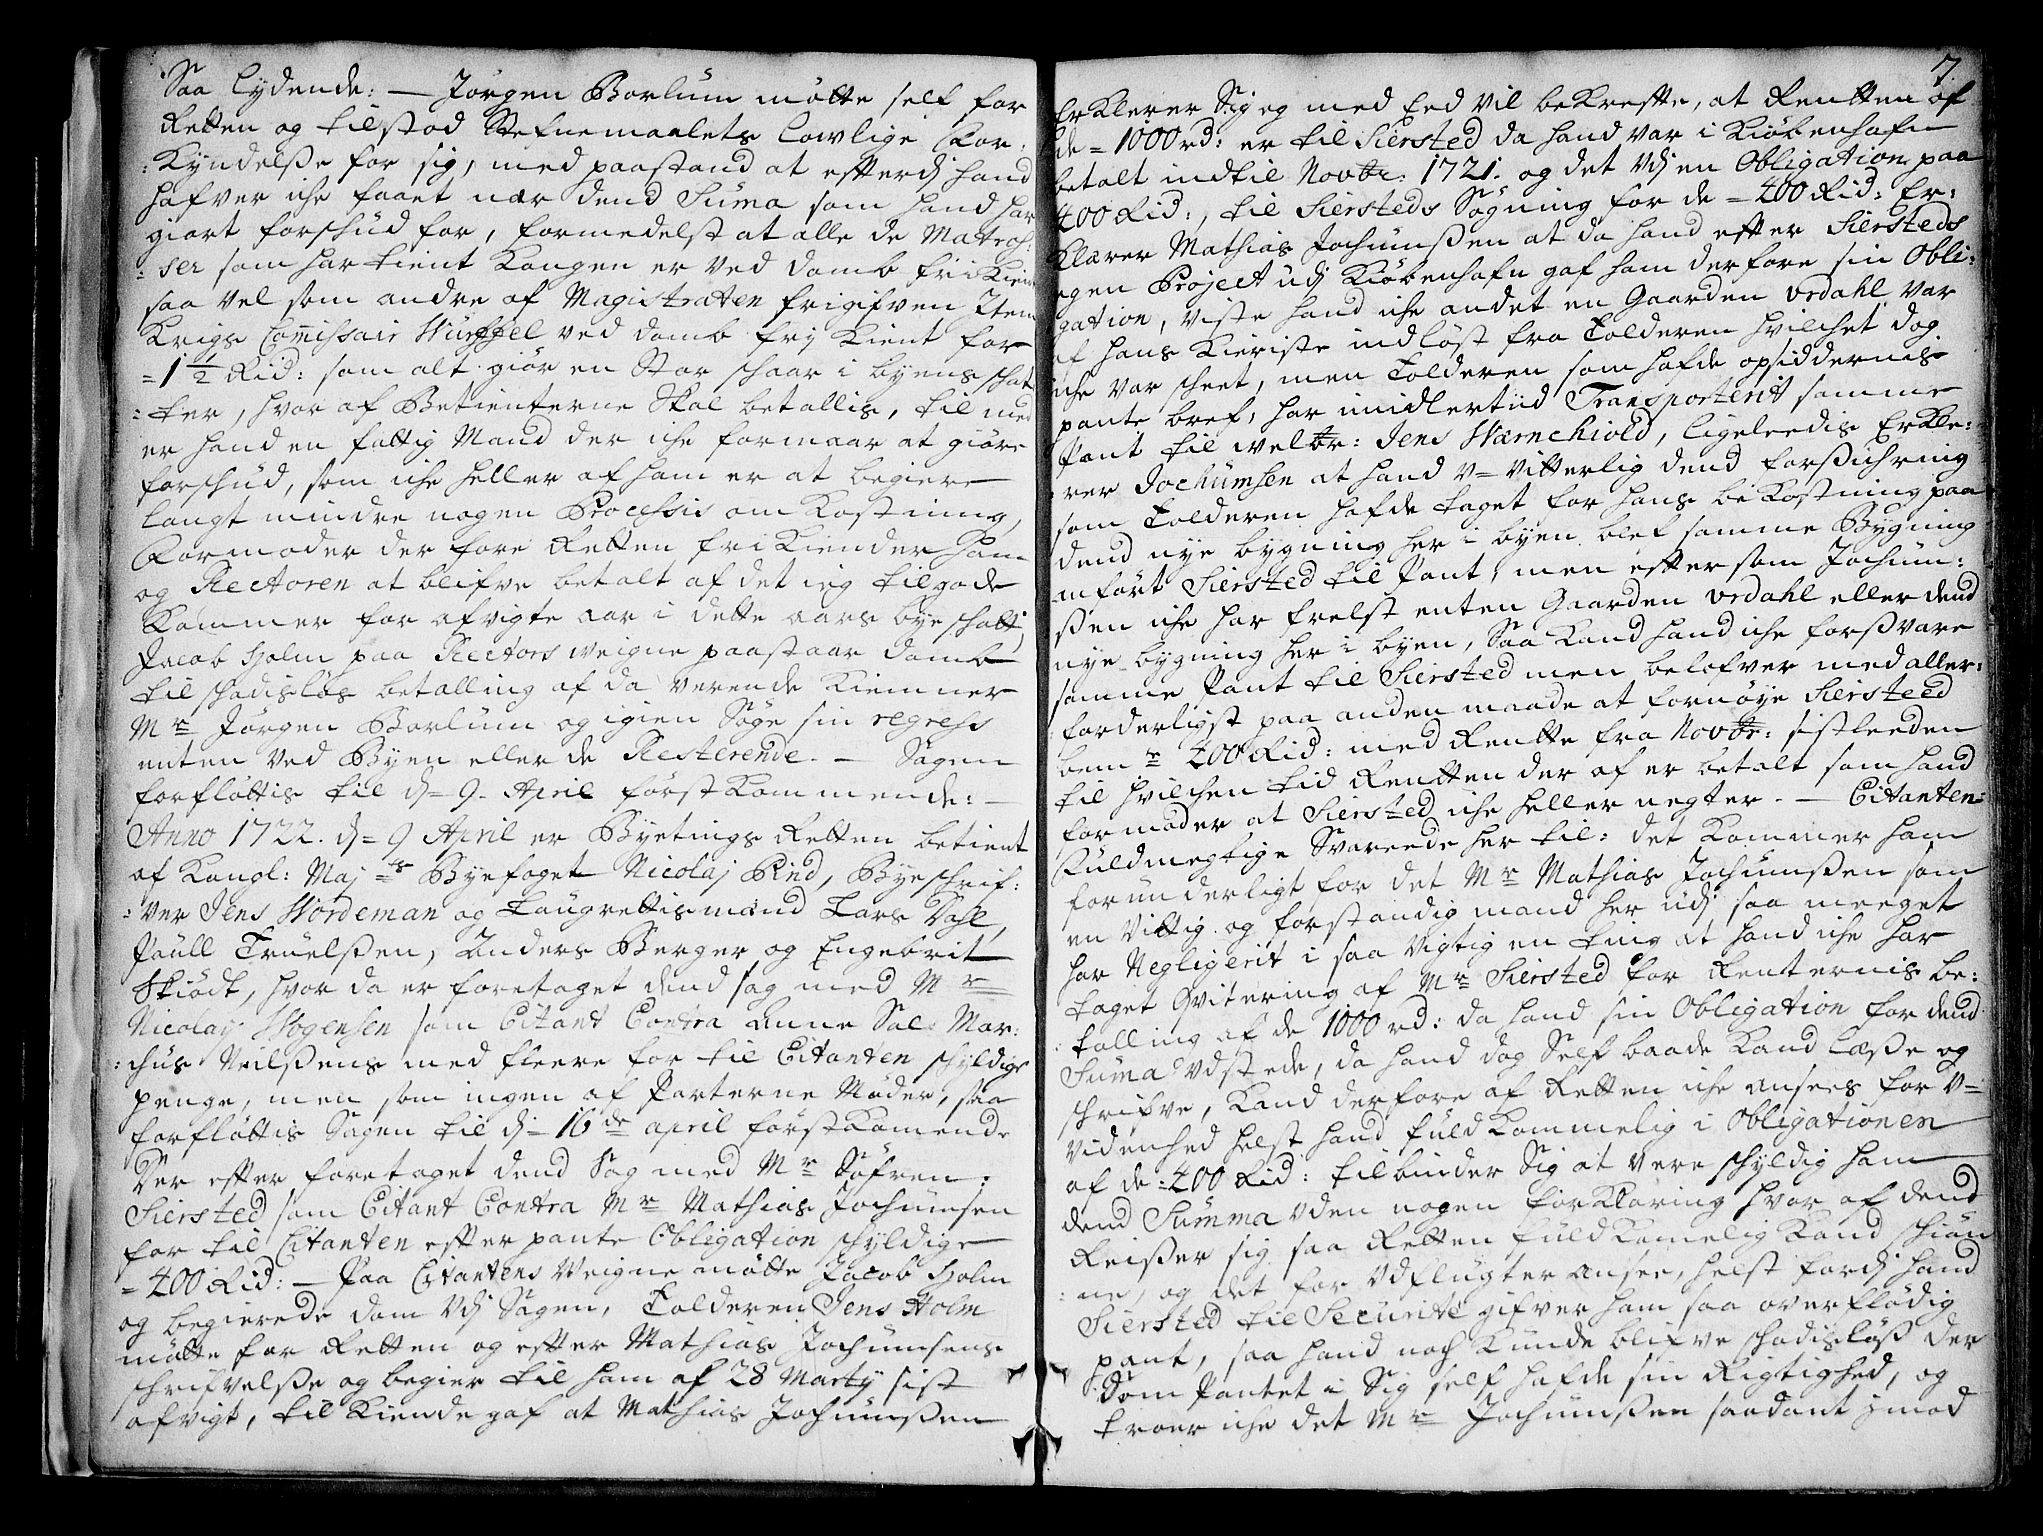 Saa lydende: — Jørgen Borlum møtte self for
Retten og tilstod Stefnemaalets lowlige for:
:Kyndelße for sig, med paastand at efterdj hand
hafver iche faaet nær dend Suma som hand har
giort forschud for, formedelst at alle de Matroh:
:ser som har tient Kongen er ved domb friKient
saa vel som andre af Magistraten frigifven Item
Krigs Comissair Würffel ved domb frj Kient for
= 1 1/2 Rid: som alt giør en Stor schaar i byens schat:
:ter, hvor af Betienterne Skal betallis, til med
er hand en fattig Mand der iche formaar at giøre
forschud, som iche heller af ham er at begiere
langt mindre nogen Processis om Kostning,
formoder der fore Retten fri Kiender ham
og Rectoren at blifve betalt af det ieg tilgode
Kommer for afvigte aar i dette aars bye schatt,
Jacob Holm paa Rectors weigne paastaar domb
til schadisløs betalling af da verende Kiemner
Mr Jørgen Borlum og igien Søge sin regress
enten ved Byen eller de Resterende. — Sagen
forfløttis til d= 9. April førstKommende: —
Anno 1722. d= 9 April er Byetings Retten betient
af Kongl: Maj=ts Byefoget Nicolaj Pind, Byeschrif:
:ver Jens Wordeman og Laugrettismænd Lars Dahl,
Paull Truelßen, Anders Berger og Engebrit
Skiødt, hvor da er foretaget dend sag med Mr
Nicolay Mogensen som Citant Contra Anne Sal: Mar:
:chus Neilßens med fleere for til Citanten schyldige
penge, men som ingen af Parterne Møder, saa
forfløttis Sagen til d= 16de april førstKomende
Der efter foretaget dend Sag med Mr Søfren
Siersted som Citant Contra Mr Mathias Jochumsen
for til Citanten efter pante Obligation schyldige
= 400 Rid: — Paa Citantens Weigne møtte Jacob Holm
og begierede dom Vdj Sagen, Tolderen Jens Holm
møtte for Retten og efter Mathias Jochumsens
schrifvelße og begier til ham af 28 Marty sist
afvigt, til Kiende gaf at Mathias Jochumßen
7.
Erklerer Sig og med Eed vil bekrefte, at Rentten af
de = 1000 rd: er til Siersted da hand var i Kiøbenhafn
betalt indtil Novbr: 1721. og det Vdj en Obligation paa
400 Rid:, til Siersteds Søgning for de = 400 Rid: Er:
Klærer Mathias Jochumßen at da hand efter Siersteds
egen Project udj Kiøbenhafn gaf ham derfore sin Obli:
gation, viste hand iche andet en Gaarden Vrdahl var
af hans Kieriste indløst fra Tolderen hvilchet dog
iche var scheet, men Tolderen som hafde opsiddernis
pante bref, har imidlertiid Transporterit samme
Pant til welbr: Jens Wærnchiold, ligeleedis Erkle:
rer Jochumsen at hand v=vitterlig dend forsichring
som Tolderen hafde taget for hans beKostning paa
dend nye bygning her i byen, blef samme Bygning
anført Siersted til Pant, men eftersom Jochum:
ßen iche har frelst enten Gaarden Vrdahl eller dend
nye bygning her i byen, Saa Kand hand iche forsvare
samme Pant til Siersted men belofver med aller:
forderligst paa anden maade at fornøye Siersteed
bemte 400 Rid: med Rentte fra Novbr: sistleeden
til hvilchen tid Rentten der af er betalt som hand
formoder at Siersted iche heller negter. — Citanten:
Fuldmegtige Svareede her til: det Kommer ham
forunderligt for det Mr Mathias Jochumßen som
en vittig og forstandig mand her udj saa meeget
har Negligerit i saa vigtig en ting at hand iche har
taget Qvitering af Mr Siersted for Renternis be:
:talling af de 1000 rd: da hand sin Obligation for dend
Suma Vdstede, da hand dog Self baade Kand læße og
schrifve, Kand derfore af Retten iche ansees for V=
videnhed helst hand fuldKommelig i Obligationen
af de = 400 Rid: tilbinder Sig at vere schyldig ham
dend Summa Vden nogen forklaring hvor af dend
Reißer sig saa Retten fuldKomelig Kand schiøn
:ne, og det for Vdflugter ansee, helst fordj hand
Siersted til Securite gifver ham saa overflødig
pant, saa hand noch Kunde blifve schadisløß der
Som Pantet i Sig self hafde sin Rigtighed, og
troer iche det Mr Jochumßen saadant imod